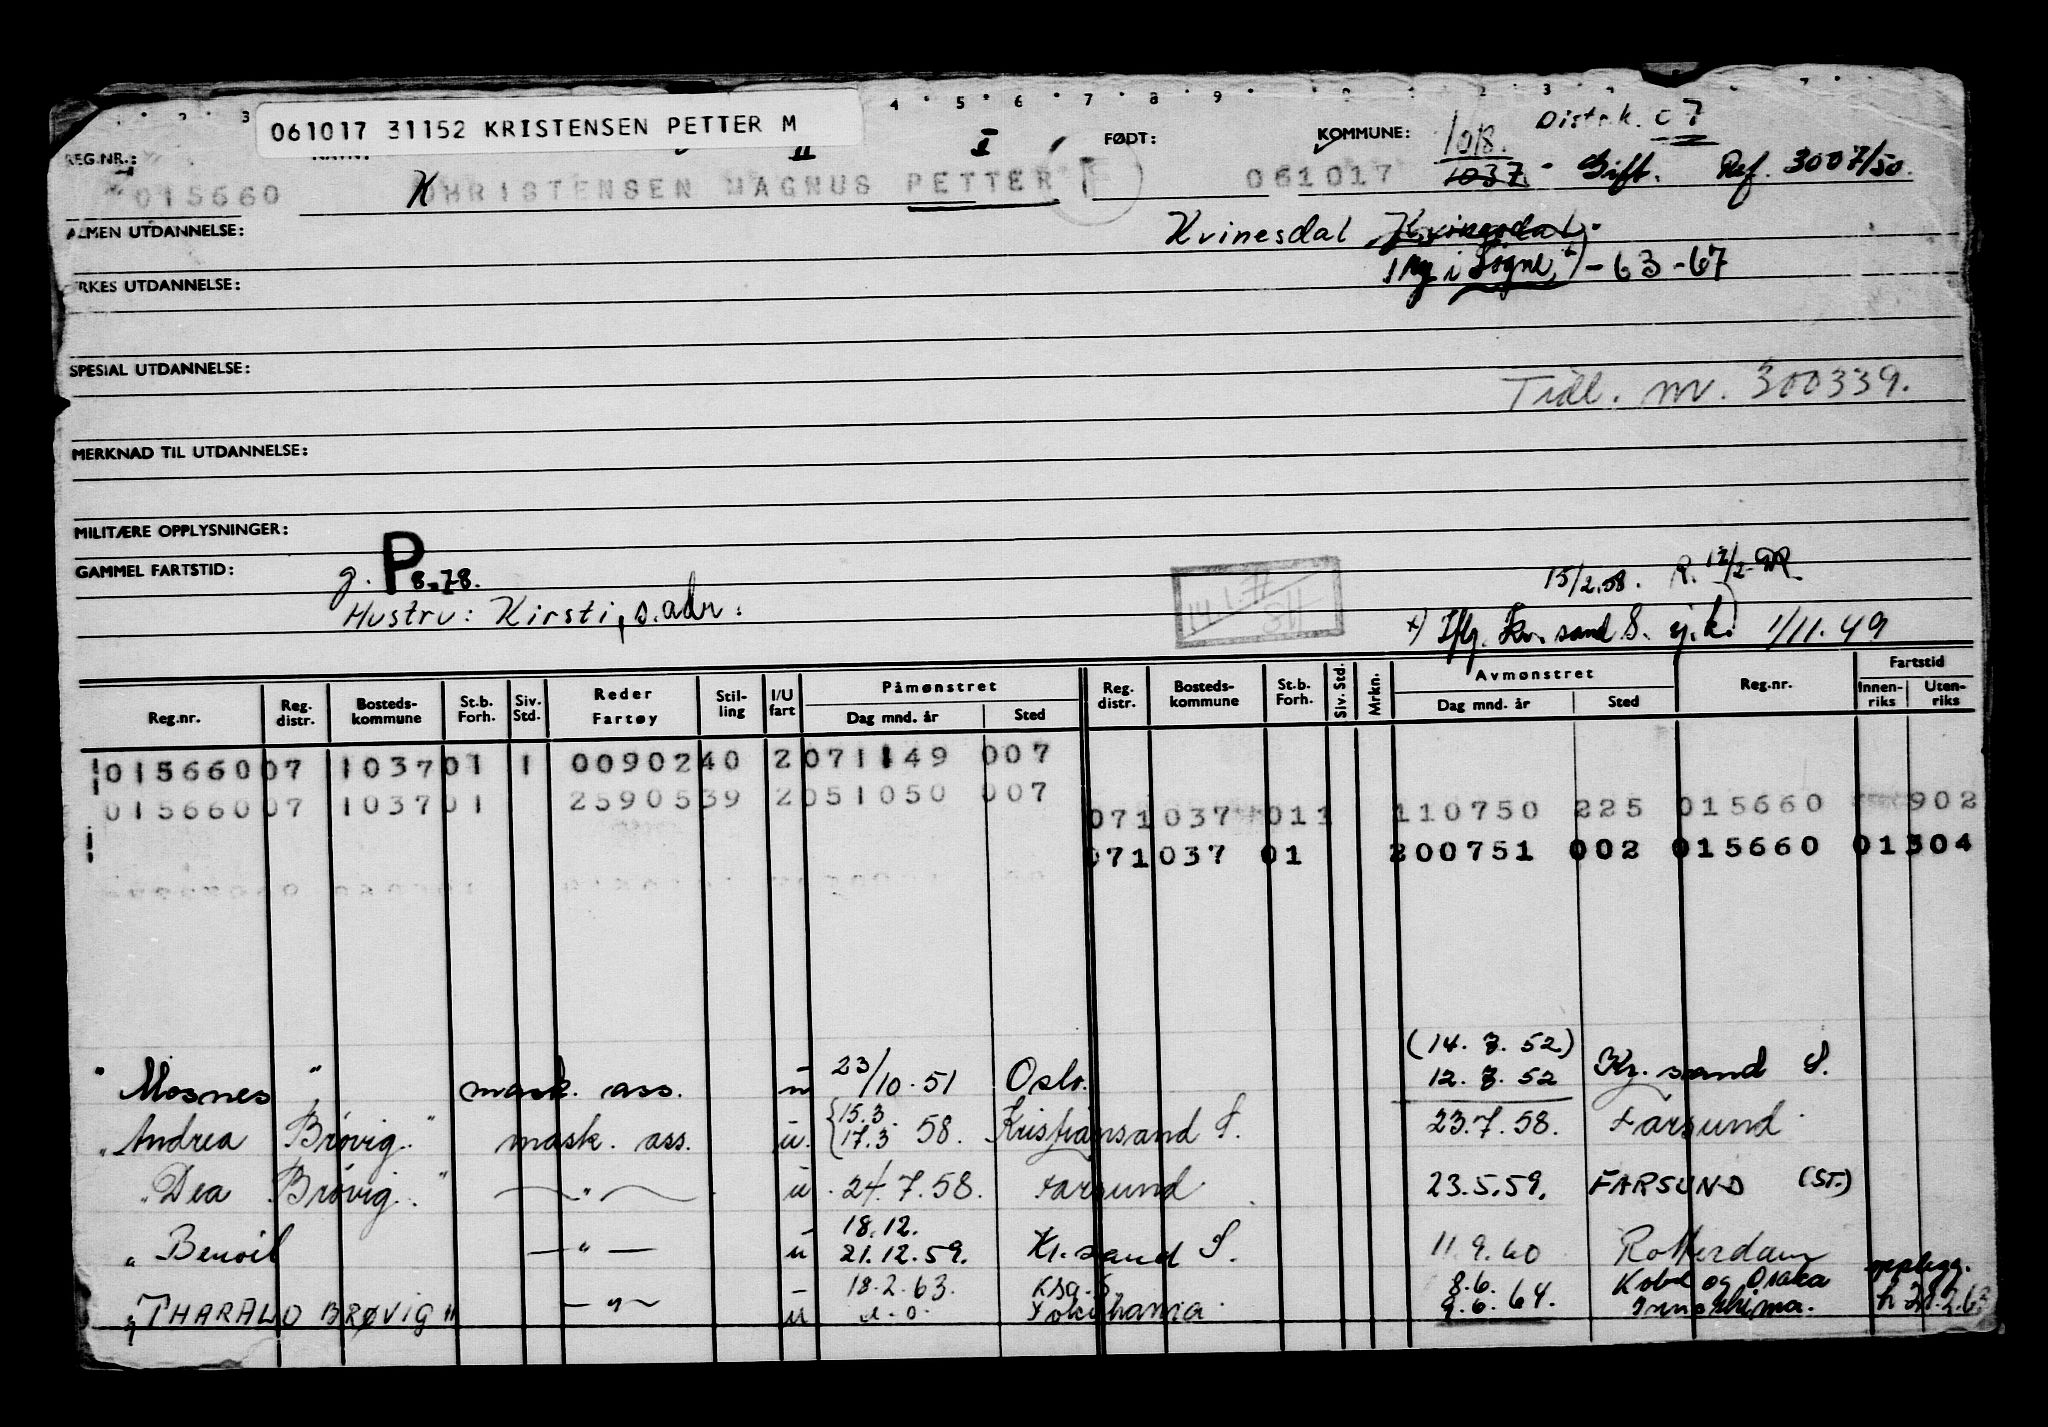 061017 31152 KRISTENSEN PETTER M
3 4 5 6 7 8 9 2 3
Distrik. 07
REG.NR.: II I FØDT: KOMMUNE: 1018.
015660 KHRISTENSEN MAGNUS PETTER F 061017 1037 - Gift. Ref. 3007/50.
ALMEN UTDANNELSE: Kvinesdal Kvinesdal.
i Søgne +) - 63-67
YRKES UTDANNELSE:
SPESIAL UTDANNELSE:
Tidl. nr. 300339.
MERKNAD TIL UTDANNELSE:
MILITÆRE OPPLYSNINGER:
GAMMEL FARTSTID: g. P 8-78. 15/2.58. R. 17/2-
Hustru: Kirsti, s.adr:
+) Iflg. Kr. sand S. sj.k. 1/11.49
Reg.nr. Reg. distr. Bosteds- kommune St.b. Forh. Siv. Std. Reder Fartøy Stil- ling I/U fart Påmønstret Dag mnd. år Sted Reg. distr. Bosteds- kommune St.b. Forh. Siv. Std. Mrkn. Avmønstret Dag mnd. år Sted Reg.nr. Fartstid Innen- riks Uten- riks
015660 07 1037 01 1 00902 40 2 071149 007
015660 07 1037 01 25905 39 2 051050 007
071037 011 110750 225 015660 902
071037 01 200751 002 015660 01304
" Mosnes " mask. ass. u 23/10.51 Oslo. (14.7.52) 12.7.52 Kr. sand S.
" Andrea Brøvig. " mask. ass. u. {15.3. 17.3 58. Kristiansand S. 23.7.58. Farsund
" Dea Brøvig. " — " — u. 24.7.58. Farsund 23.5.59. FARSUND (ST.)
" Benoil — " — u 18.12. 21.12.59. Kr. sand S. 11.9.60 Rotterdam
" THARALD BRØVIG " — " — u 18.2.63. Ksa. S. Yokohama. 8.6. 9.6.64. Kobe og Osaka Innoshima. opplegg. h 21.2.63